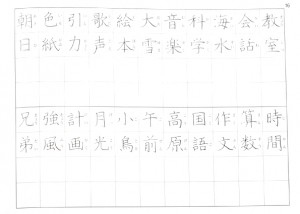 教室
会話
海水
科学
音楽
大雪
絵本
歌声
引力
色紙
朝日
時間
算数
作文
国語
高原
午前
小鳥
月光
計画
強風
兄弟